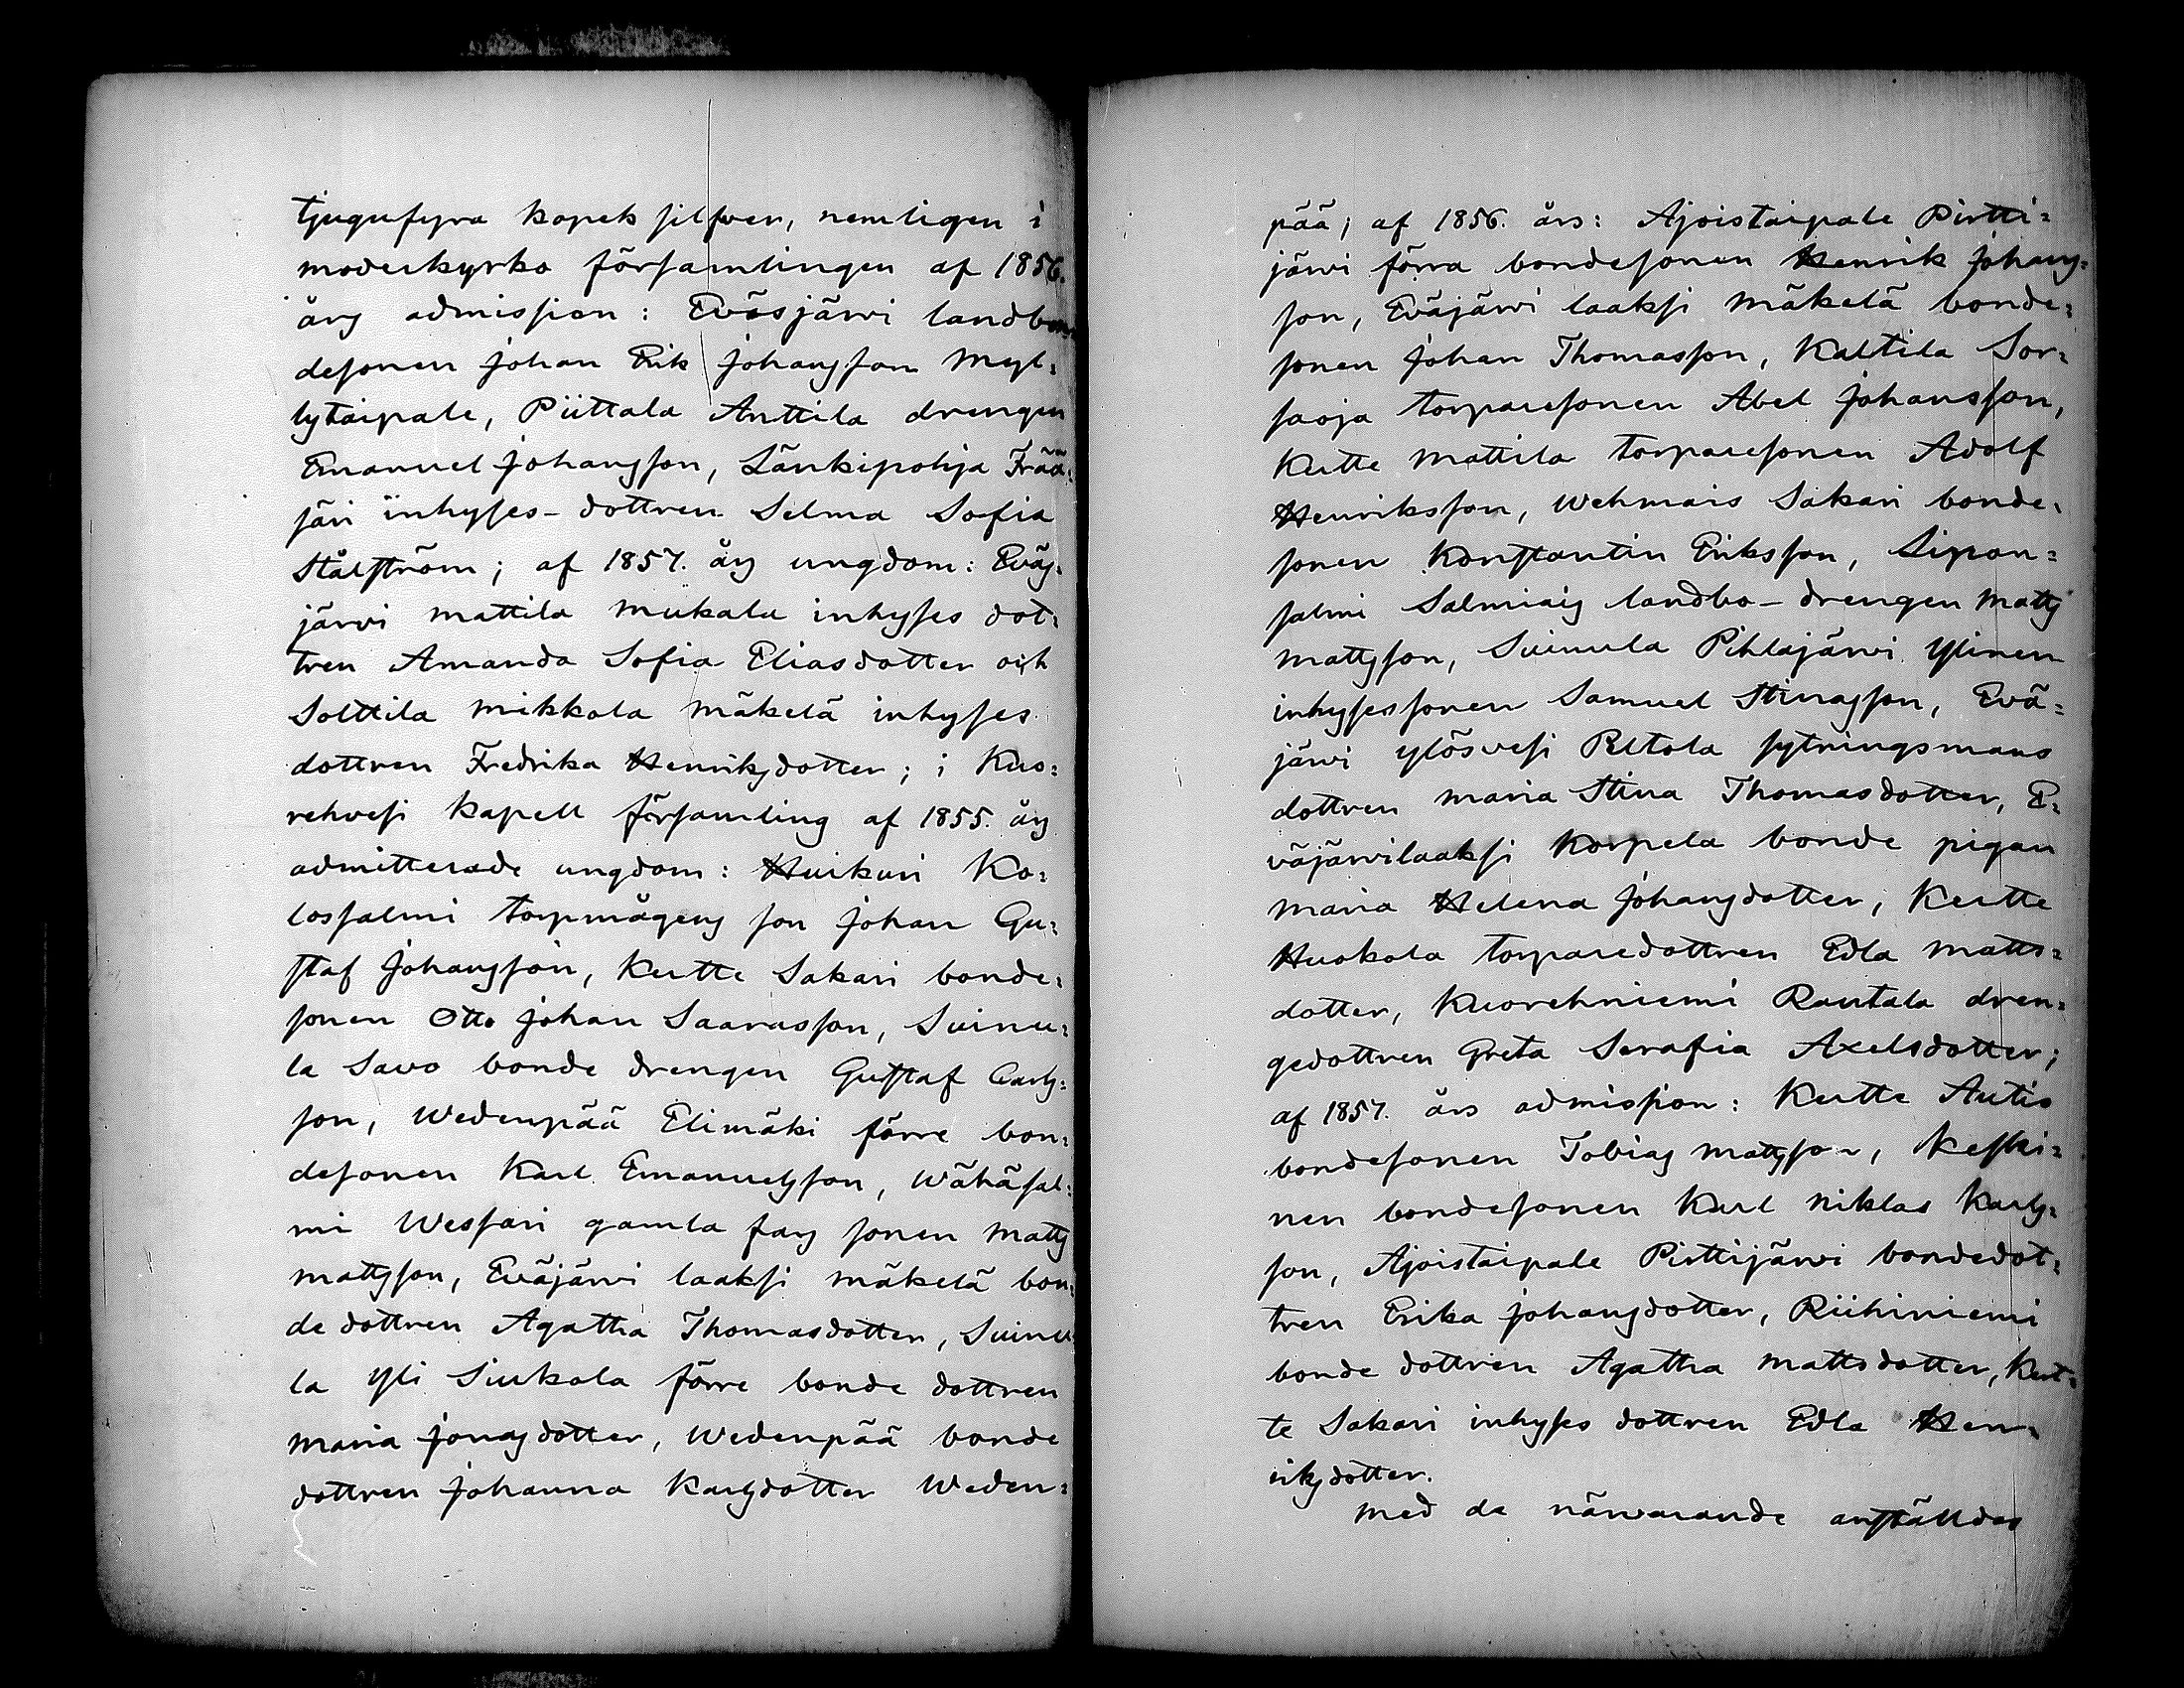 tjugufyra kopek silfver, nemligen i
moderkyrko församlingen af 1856.
års admission: Eväsjärvi landbon¬
desonen Johan Erik Johansson Myl¬
lytaipale, Piittala Anttila drengen
Emanuel Johansson, Länkipohja Frää¬
järi inhyses-dottren Selma Sofia
Stålström; af 1857. års ungdom: Eväs¬
järvi Mattila Mukala inhyses dot¬
tren Amanda Sofia Eliasdotter och
Solttila Mikkola Mäkelä inhyses
dottren Fredrika Henriksdotter; i Kuo¬
rehvesi Kapell församling af 1855. års
admitterade ungdom: Huikuri Ko¬
lossalmi torpmågens son Johan Gu¬
staf Johansson, Keutte Sakari bonde¬
sonen Otto Johan Saarasson, Suinu¬
la Savo bonde drengen Gustaf Carls¬
son, Wedenpää Elimäki förre bon¬
desonen Karl Emanuelsson, Wähäsal¬
mi Wessari gamla fars sonen Matts
Mattsson, Eväjärvi laaksi Mäkelä bon¬
de dottren Agatha Thomasdotter, Suinu
la Yli Siukola förre bonde dottren
Maria Jonasdotter, Wedenpää bonde
dottren Johanna Karlsdotter Weden¬
pää; af 1856. års: Ajoistaipale Pirtti¬
järvi förra bondesonen Henrik Johans¬
son, Eväjärvi laaksi Mäkelä bonde¬
sonen Johan Thomasson, Kaltila Sor¬
saoja torparesonen Abel Johansson,
Keutte Mattila torparesonen Adolf
Henriksson, Wehmais Sakari bonde¬
sonen Konstantin Eriksson, Lipon¬
salmi Salmiais landbo-drengen Matts
Mattsson, Suinula Pihlajärvi Ylinen
inhysessonen Samuel Stinasson, Evä¬
järvi Ylösvesi Reetola sytningsmans
dottren Maria Stina Thomasdotter, E¬
väjärvilaaksi Korpela bonde pigan
Maria Helena Johansdotter; Keutte
Huokola torparedottren Edla Matts¬
dotter, Kuorehniemi Rautala dren¬
gedottren Greta Serafia Axelsdotter;
af 1857. års admission: Keutte Autio
bondesonen Tobias Mattsson, Keski¬
nen bondesonen Karl Niklas Karls¬
son, Ajoistaipale Pirttijärvi bondedot¬
tren Erika Johansdotter, Riihiniemi
bonde dottren Agatha Mattsdotter, Keut¬
te Sakari inhyses dottren Edla Hen¬
riksdotter.
Med de närvarande anställdes